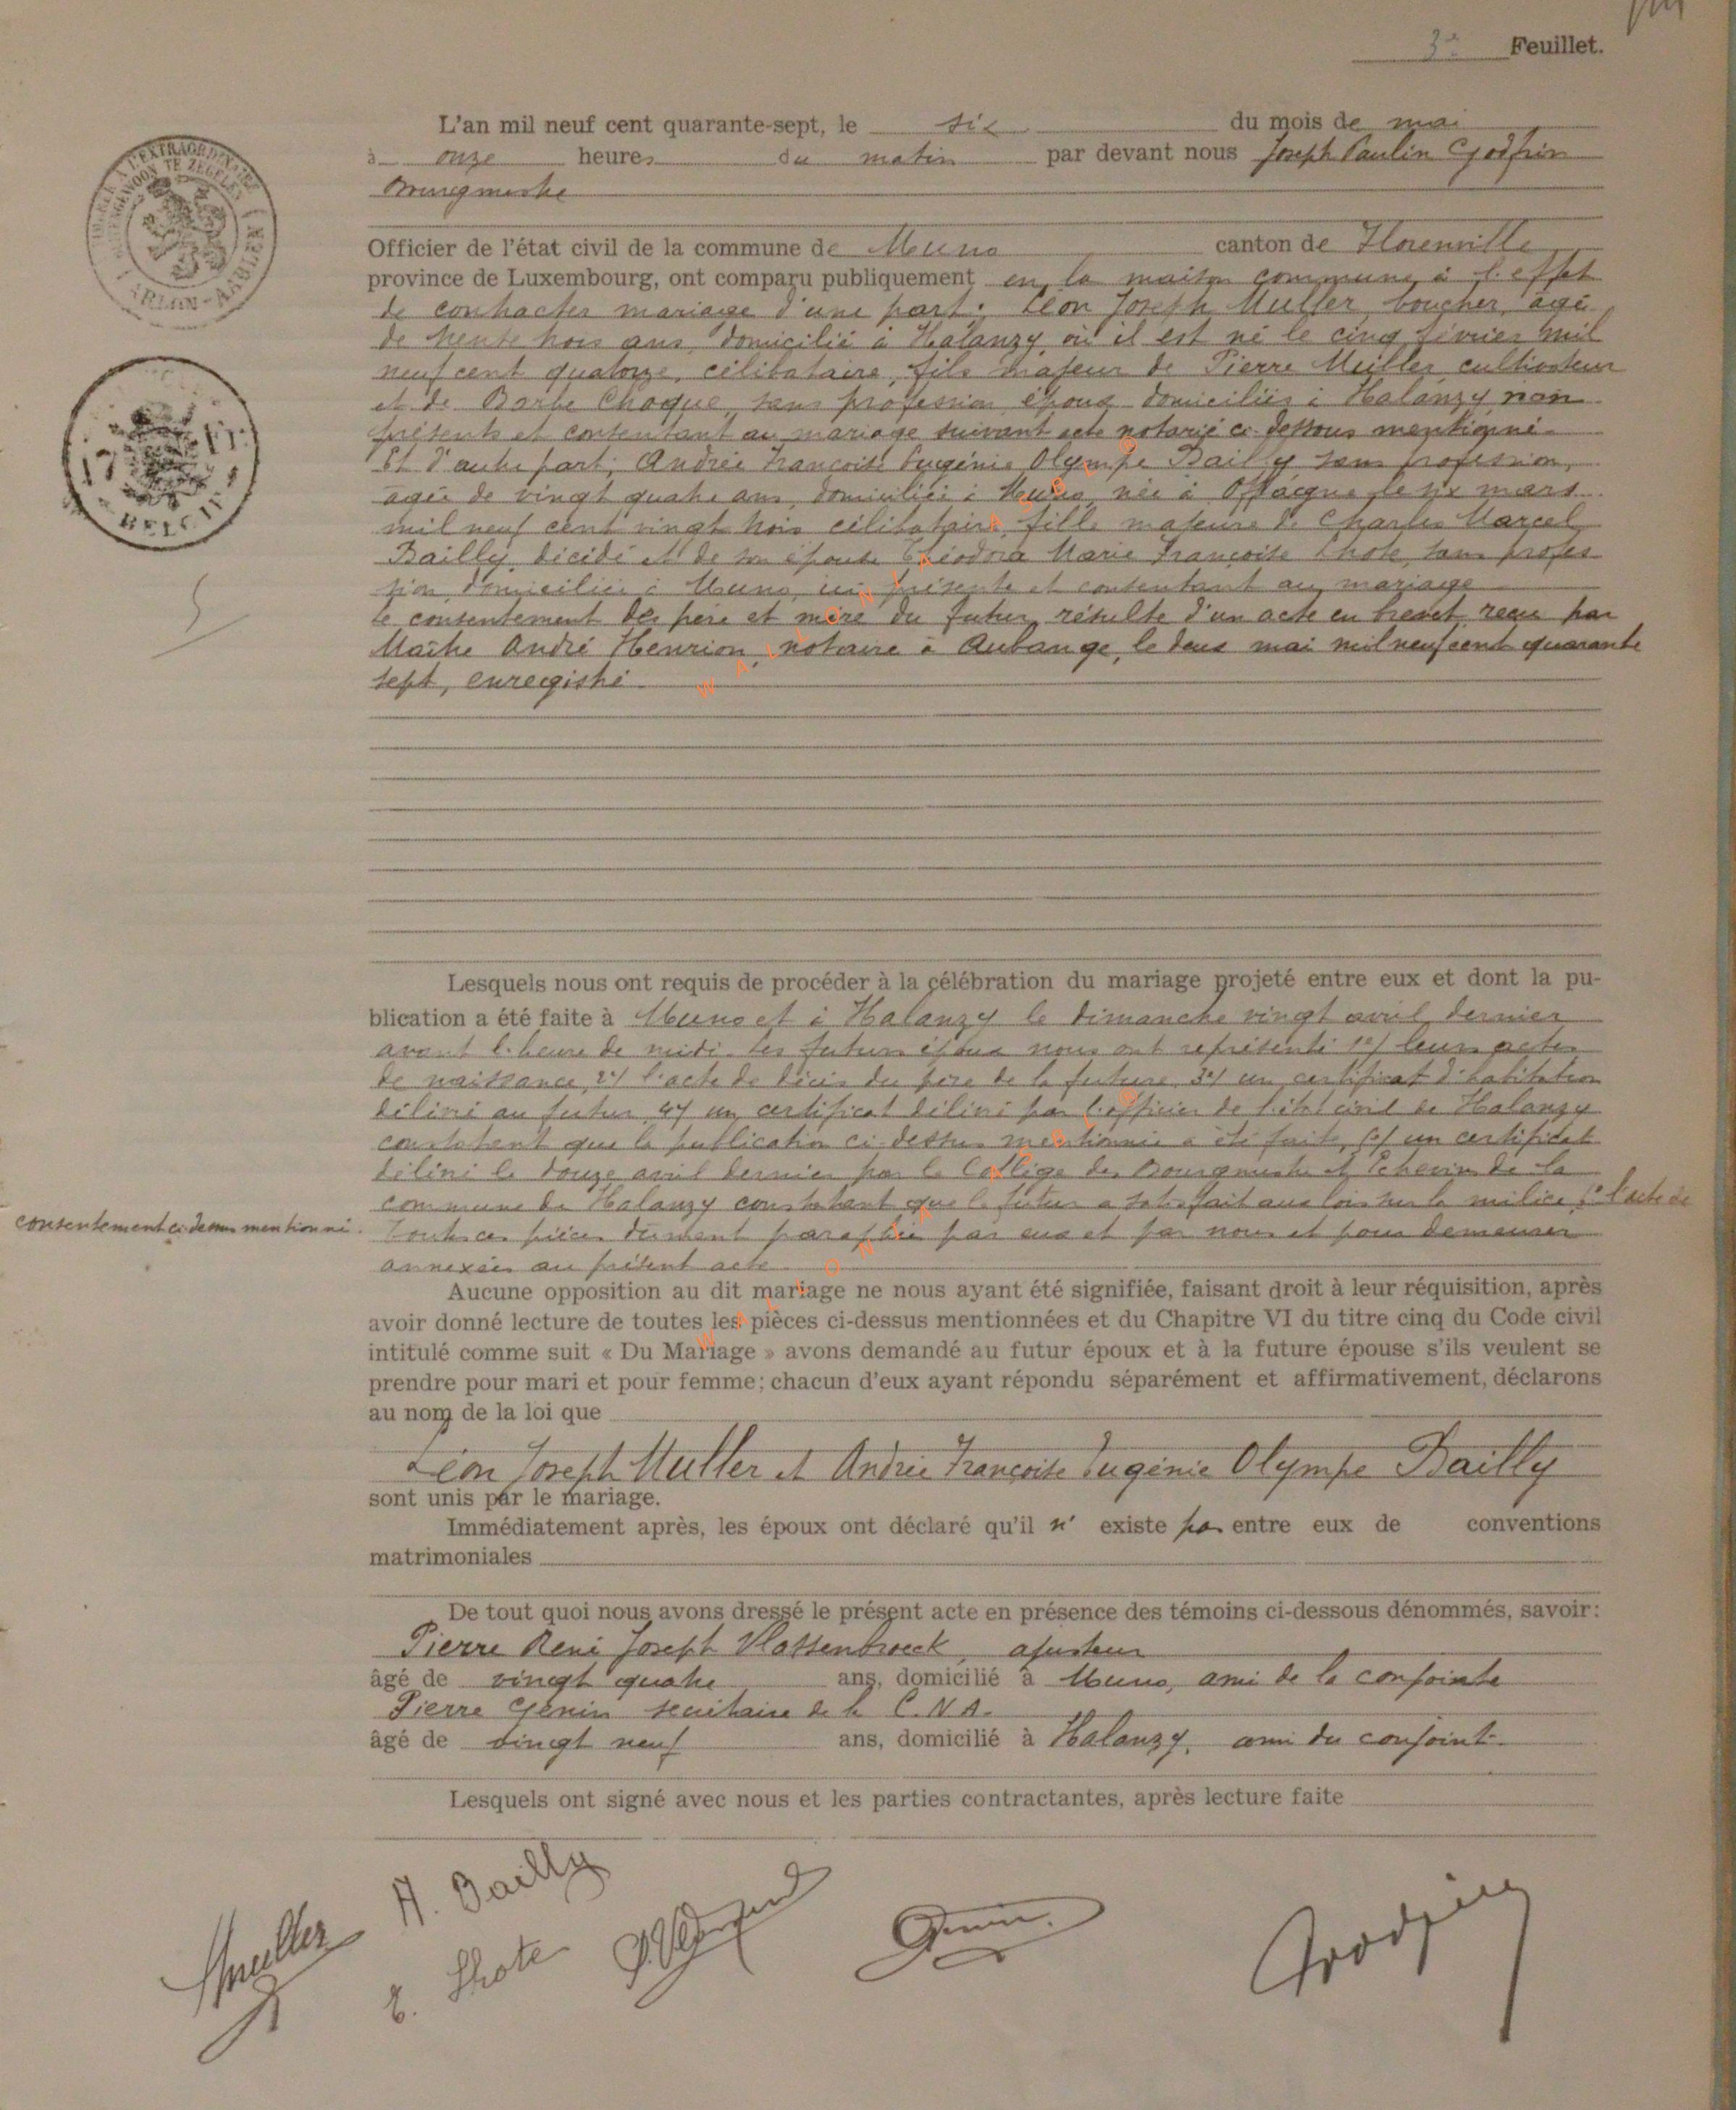 3e Feuillet.
L'an mil neuf cent quarante-sept, le six du mois de mai
à onze heures du matin par devant nous Joseph Paulin Godfrin
Bourgmestre
Officier de l'état civil de la commune de Muno canton de Florenville
province de Luxembourg, ont comparu publiquement en la maison commune à l'effet
de contracter mariage d'une part: Léon Joseph Muller, boucher, âgé
de trente trois ans, domicilié à Halanzy où il est né le cinq février mil
neuf cent quatorze, célibataire, fils majeur de Pierre Muller cultivateur
et de Barbe Choque, sans profession époux domiciliés à Halanzy non
présents et consentant au mariage suivant acte notarié ci-dessous mentionné
Et d'autre part, Andrée Françoise Eugénie Olympe Bailly sans profession,
âgée de vingt quatre ans, domiciliée à Muno, née à Offagne le six mars
mil neuf cent vingt trois célibataire, fille majeure de Charles Marcel
Bailly, décédé et de son épouse Théodora Marie Françoise Lhote, sans profes
sion, domiciliée à Muno, ici présente et consentant au mariage
le consentement des père et mère du futur résulte d'un acte en brevet reçu par
Maître André Henrion, notaire à Aubange, le deux mai mil neuf cent quarante
sept, enregistré
Lesquels nous ont requis de procéder à la célébration du mariage projeté entre eux et dont la pu-
blication a été faite à Muno et à Halanzy le dimanche vingt avril dernier
avant l'heure de midi. Les futurs époux nous ont représenté 1°/ leurs actes
de naissance, 2°/ l'acte de décès du père de la future, 3°/ un certificat d'habitation
délivré au futur 4°/ un certificat délivré par l'officier de l'état civil de Halanzy
constatant que la publication ci-dessus mentionnée a été faite, 5°/ un certificat
délivré le douze avril dernier par le Collège des Bourgmestre et Echevins de la
commune de Halanzy constatant que le futur a satisfait aux lois sur la milice 6° l'acte de
consentement ci-dessus mentionné. Toutes ces pièces dûment paraphées par eux et par nous et pour demeurer
annexées au présent acte
Aucune opposition au dit mariage ne nous ayant été signifiée, faisant droit à leur réquisition, après
avoir donné lecture de toutes les pièces ci-dessus mentionnées et du Chapitre VI du titre cinq du Code civil
intitulé comme suit « Du Mariage » avons demandé au futur époux et à la future épouse s'ils veulent se
prendre pour mari et pour femme; chacun d'eux ayant répondu séparément et affirmativement, déclarons
au nom de la loi que
Léon Joseph Muller et Andrée Françoise Eugénie Olympe Bailly
sont unis par le mariage.
Immédiatement après, les époux ont déclaré qu'il n' existe pas entre eux de conventions
matrimoniales
De tout quoi nous avons dressé le présent acte en présence des témoins ci-dessous dénommés, savoir:
Pierre René Joseph Vlassenbroeck, ajusteur
âgé de vingt quatre ans, domicilié à Muno, ami de la conjointe
Pierre Génin secrétaire de la C.N.A.
âgé de vingt neuf ans, domicilié à Halanzy, ami du conjoint.
Lesquels ont signé avec nous et les parties contractantes, après lecture faite
A. Bailly
Muller
Lhote
Genin
Godfrin